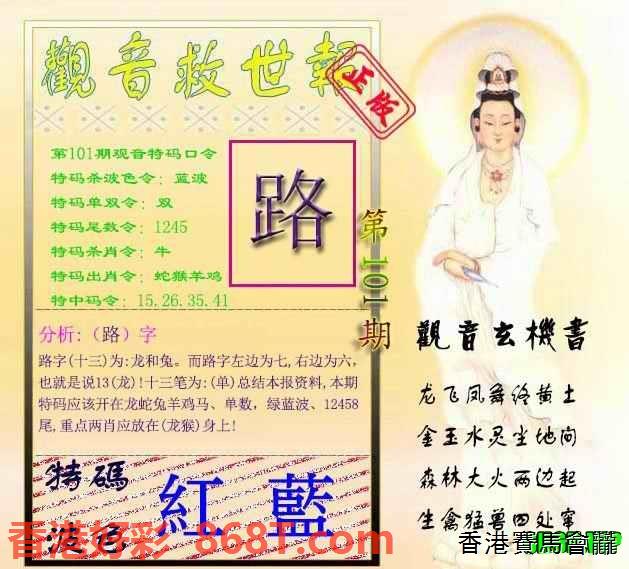 觀音救世報
正版
第101期观音特码口令
特码杀波色令：蓝波
特码单双令：双
特码尾数令：1245
特码杀肖令：牛
特码出肖令：蛇猴羊鸡
特中码令：15.26.35.41
路
第101期
分析:（路）字
路字(十三)为:龙和兔。而路字左边为七,右边为六，
也就是说13(龙)!十三笔为:(单)总结本报资料,本期
特码应该开在龙蛇兔羊鸡马、单数，绿蓝波、12458
尾,重点两肖应放在(龙猴)身上!
觀音玄機書
龙飞凤舞终黄土
金玉水灵尘地间
森林大火两边起
生禽猛兽四处窜
特碼
波色
紅藍
香港好彩 868T.com
香港賽馬會